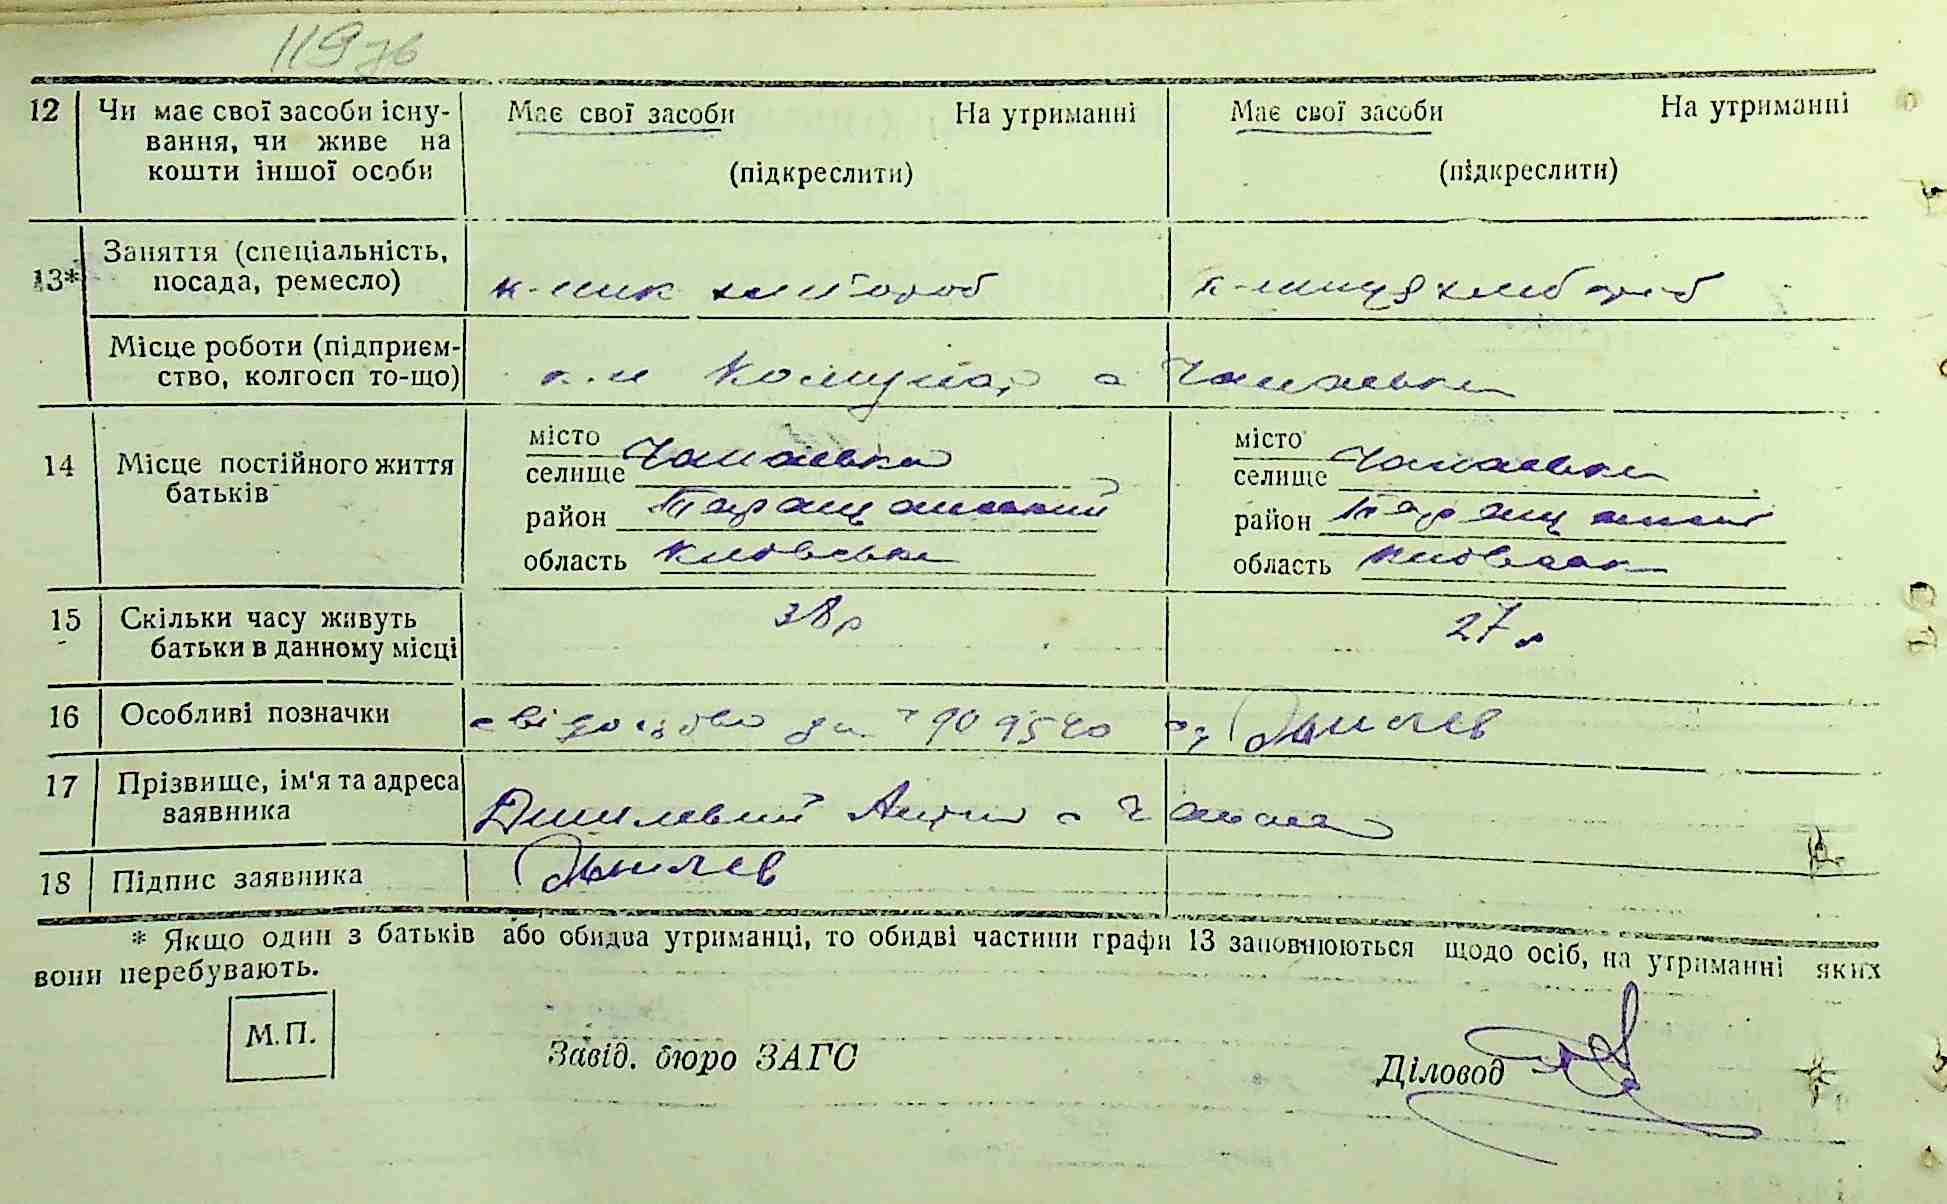 119 зв
12 Чи має свої засоби існу- Має свої засоби На утриманні Має свої засоби На утриманні
вання, чи живе на
кошти іншої особи (підкреслити) (підкреслити)
Заняття (спеціальність,
13* посада, ремесло) к-ник хлібороб к-ниця хлібороб
Місце роботи (підприєм-
ство, колгосп то-що) Комунар с Чапаєвка
місто місто
14 Місце постійного життя селище Чапаєвка селище Чапаєвка
батьків район Таращанський район Таращански
область Київська область Київська
15 Скільки часу живуть 38 р 27 р
батьки в данному місці
16 Особливі позначки свідоцтво од Данилев
17 Прізвище, ім'я та адреса
заявника Данилевий с
18 Підпис заявника Данилев
* Якщо один з батьків або обидва утриманці, то обидві частини графи 13 заповнюються щодо осіб, на утриманні яких
вони перебувають.
М.П.
Завід. бюро ЗАГС Діловод